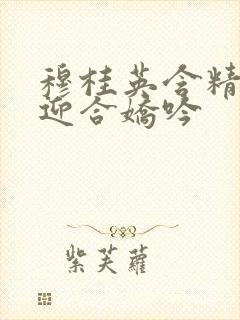 穆桂英含精
迎合嬌吟
紫芙蘿